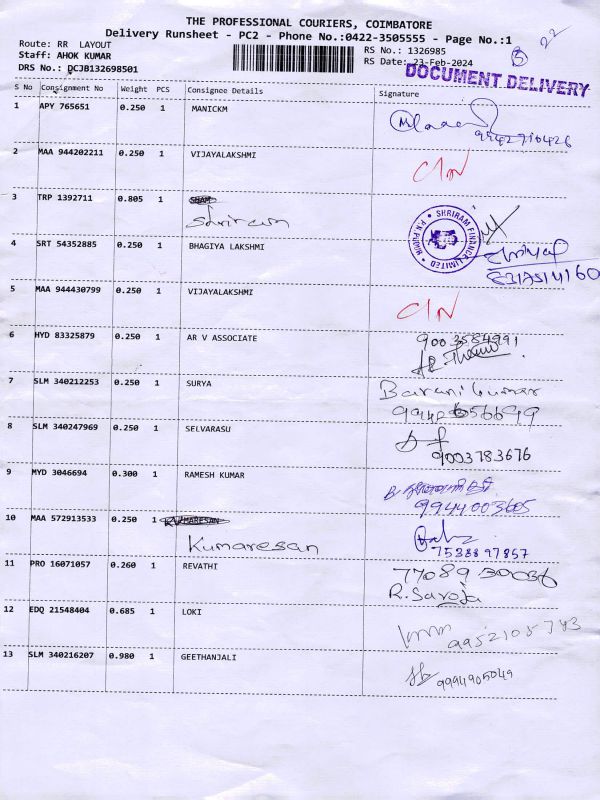 THE PROFESSIONAL COURIERS, COIMBATORE
Delivery Runsheet - PC2 - Phone No.:0422-3505555 - Page No.:1
Route: RR LAYOUT
RS No.: 1326985
Staff: AHOK KUMAR
RS Date: 23-Feb-2024
22
DRS No.: DCJB132698501
DOCUMENT DELIVERY
S No Consignment No Weight PCS Consignee Details Signature
1 APY 765651 0.250 1 MANICKM
9942710426
2 MAA 944202211 0.250 1 VIJAYALAKSHMI
3 TRP 1392711 0.805 1
Shriram
SHRIRAM FINANCE LIMITED
4 SRT 54352885 0.250 1 BHAGIYA LAKSHMI
5 MAA 944430799 0.250 1 VIJAYALAKSHMI
6 HYD 83325879 0.250 1 AR V ASSOCIATE
9003584991
7 SLM 340212253 0.250 1 SURYA Barani kumar
9942656699
8 SLM 340247969 0.250 1 SELVARASU
9003783676
9 MYD 3046694 0.300 1 RAMESH KUMAR
9944003605
10 MAA 572913533 0.250 1 KUMARESAN
Kumaresan
7538897857
11 PRO 16071057 0.260 1 REVATHI 7708930036
R. Saroja
12 EDQ 21548404 0.685 1 LOKI
9952105743
13 SLM 340216207 0.980 1 GEETHANJALI
9994905049